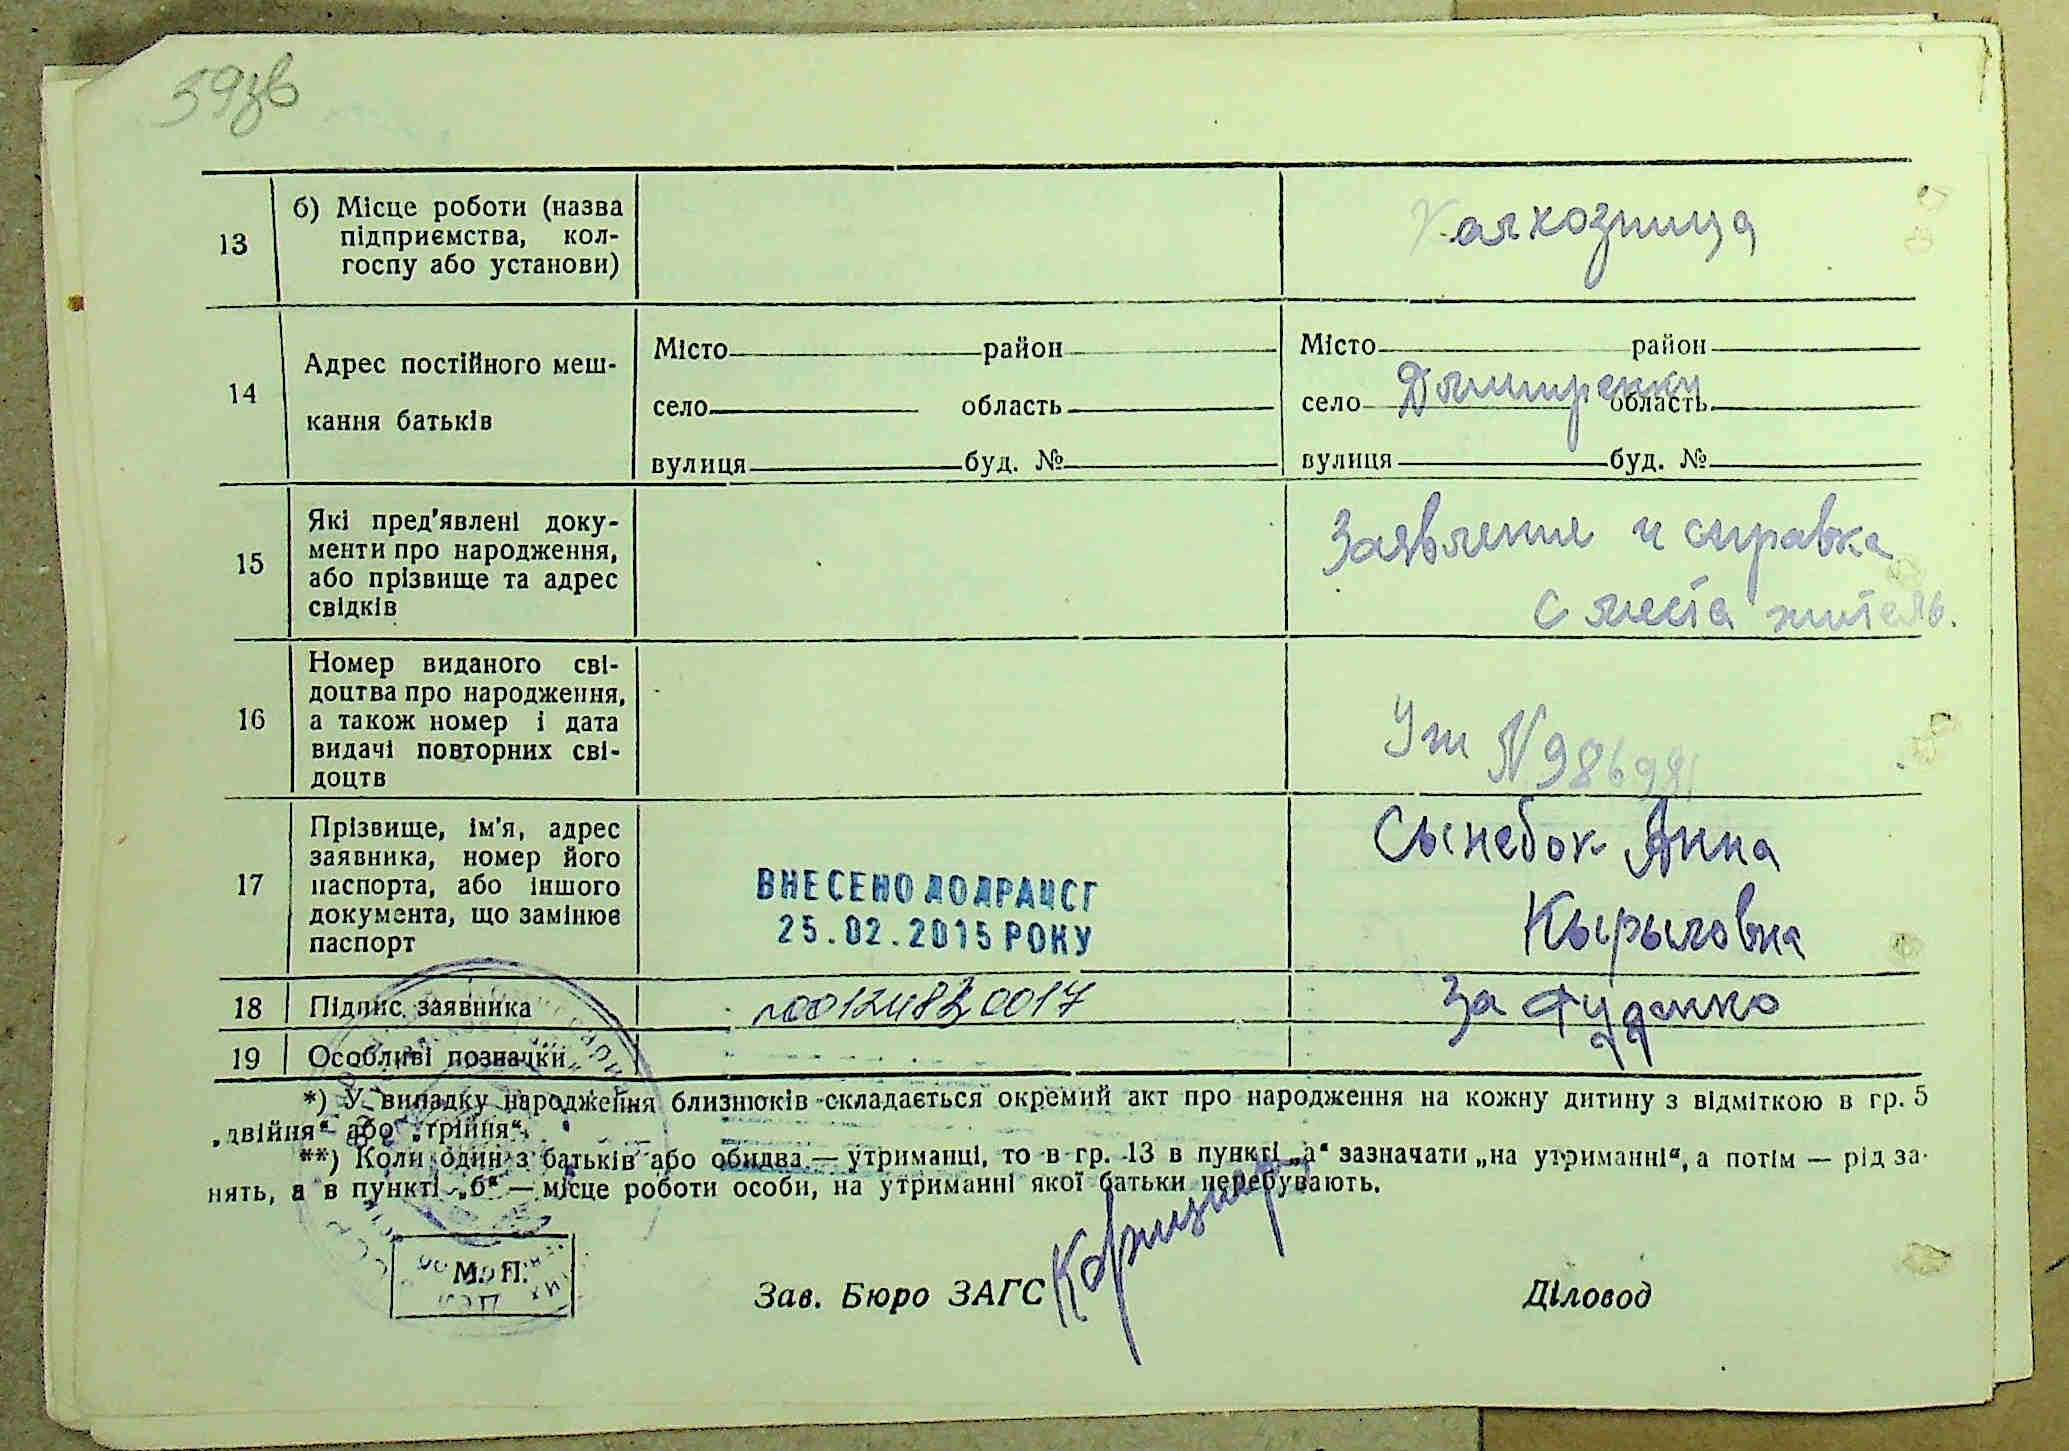 59зв
13
б) Місце роботи (назва
підприємства, кол-
госпу або установи)
Калхозница
14
Адрес постійного меш-
кання батьків
Місто район
село область
вулиця буд. №
Місто район
село Дмитренки область
вулиця буд. №
15
Які пред'явлені доку-
менти про народження,
або прізвище та адрес
свідків
Заявление и справка
с места житель.
16
Номер виданого сві-
доцтва про народження,
а також номер і дата
видачі повторних сві-
доцтв
N 986981
17
Прізвище, ім'я, адрес
заявника, номер його
паспорта, або іншого
документа, що замінює
паспорт
ВНЕСЕНО ДО ДРАЦСГ
25.02.2015 РОКУ
Сынебок Анна
Кырыловна
18
Підпис заявника
00124830017
За
19
Особливі позначки
*) У випадку народження близнюків складається окремий акт про народження на кожну дитину з відміткою в гр. 5
„двійня“ або „трійня“.
**) Коли один з батьків або обидва — утриманці, то в гр. 13 в пункті „а“ зазначати „на утриманні“, а потім — рід за-
нять, а в пункті „б“ — місце роботи особи, на утриманні якої батьки перебувають.
М. П.
Зав. Бюро ЗАГС
Діловод